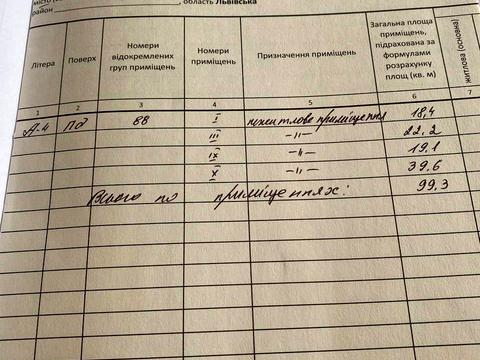 район , область Львівська
Літера Поверх Номери відокремлених груп приміщень Номери приміщень Призначення приміщень Загальна площа приміщень, підрахована за формулами розрахунку площ (кв. м) житлова (основна)
1 2 3 4 5 6 7
А-4 Пд 88 I нежитлове приміщення 18,4
III -//- 22,2
IX -//- 19,1
X -//- 39,6
Всього по приміщеннях: 99,3